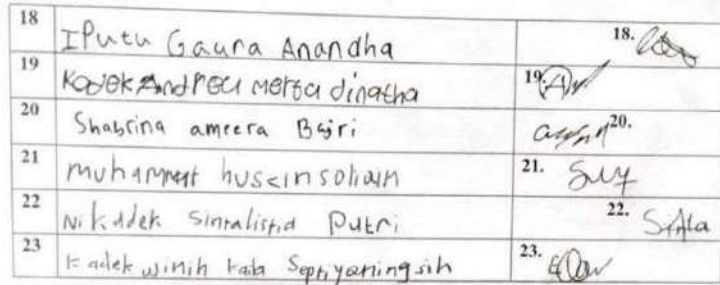 18 I Putu Gaura Anandha 18.
19 Kadek Andrea merta dinatha 19.
20 Shabrina ameera Bajri 20.
21 muhammat husein soliain 21.
22 Ni kadek Sintalistia Putri 22. Sinta
23 Kadek winih kata Septiyaningsih 23.